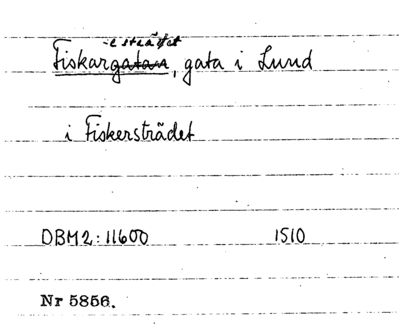 -e strädet
Fiskargatan, gata i Lund
i Fiskersträdet
DBM2:11600 1510
Nr 5856.